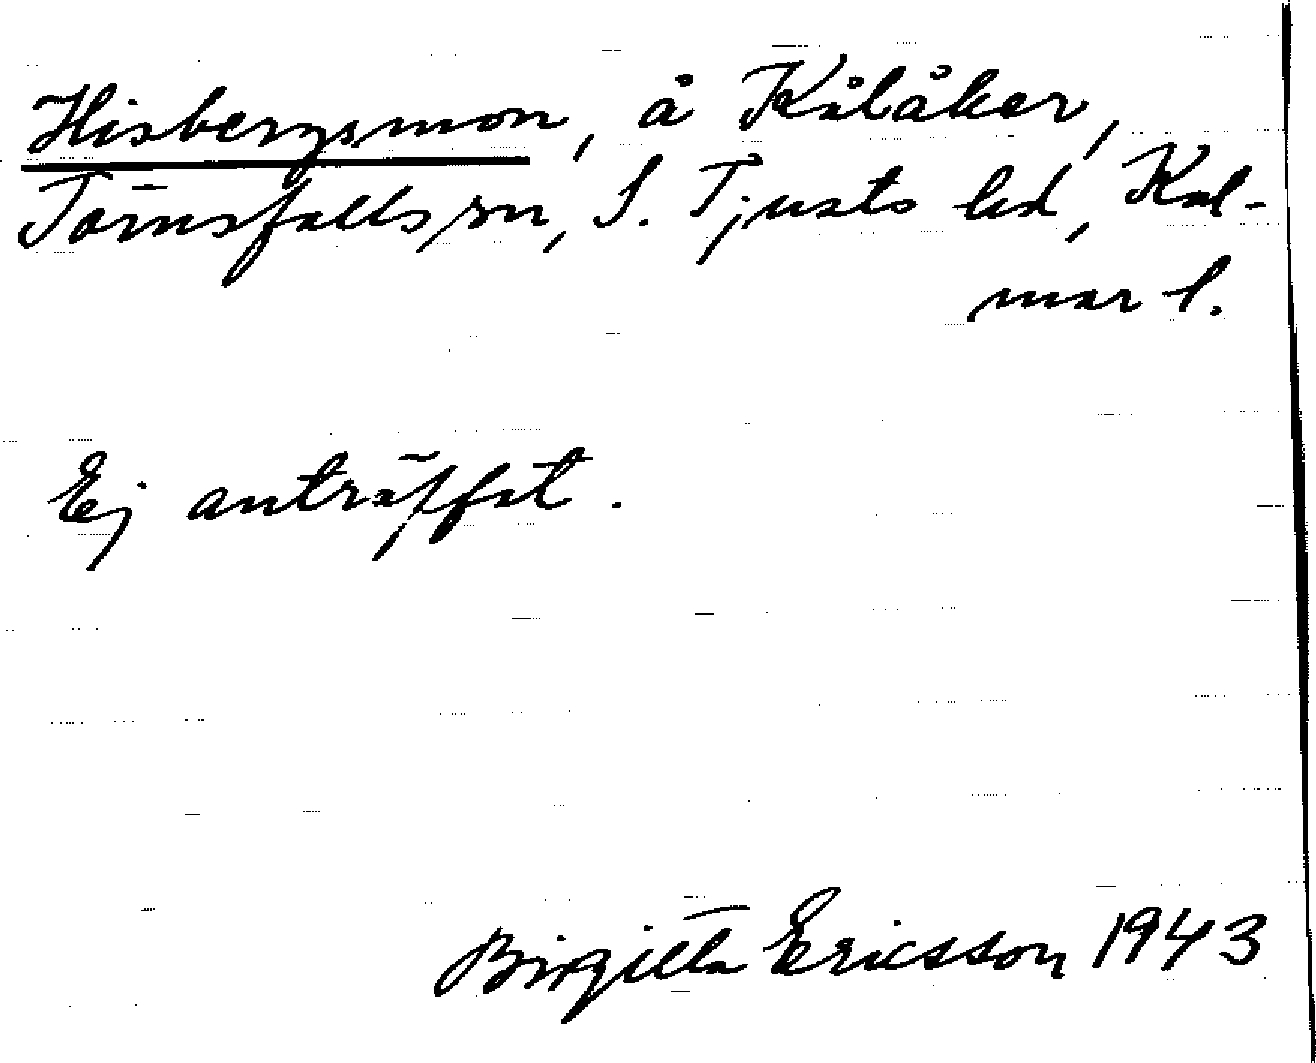 Hisbergsmon, å Kålåker,
Törnsfalls sn, S. Tjusts hd, Kal-
mar l.
Ej anträffat.
Birgitta Ericsson 1943